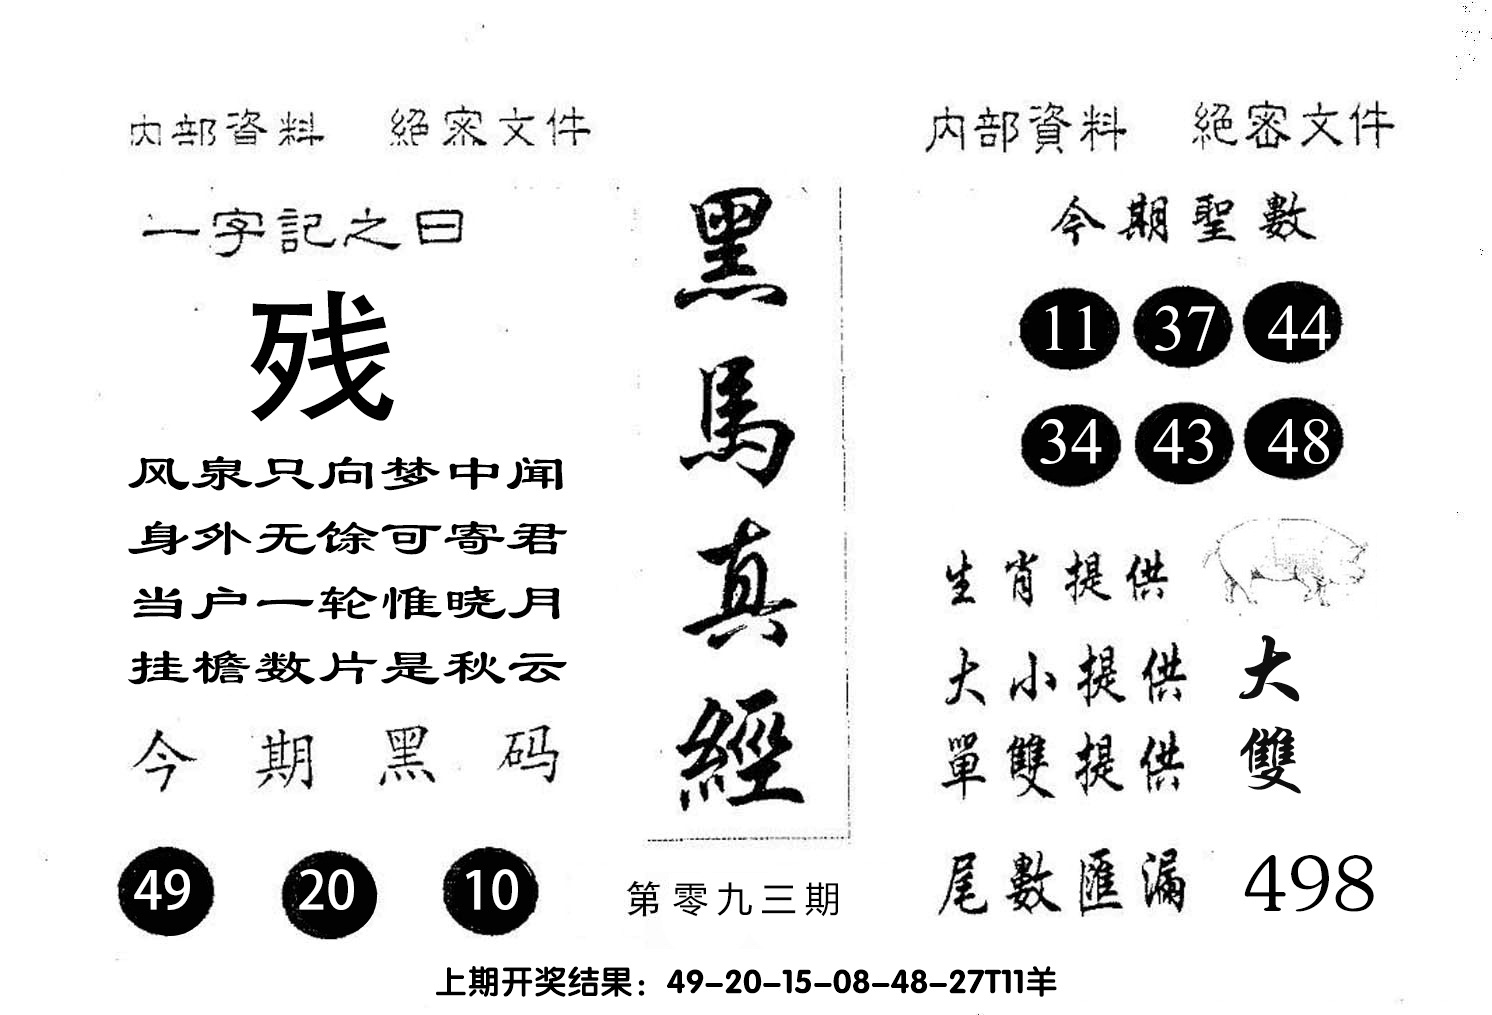 内部資料 絕密文件
一字記之曰
残
风泉只向梦中闻
身外无馀可寄君
当户一轮惟晓月
挂檐数片是秋云
今期黑码
49 20 10
黑馬真經
第零九三期
内部資料 絕密文件
今期聖數
11 37 44
34 43 48
生肖提供
大小提供 大
單雙提供 雙
尾數匯漏 498
上期开奖结果：49-20-15-08-48-27T11羊